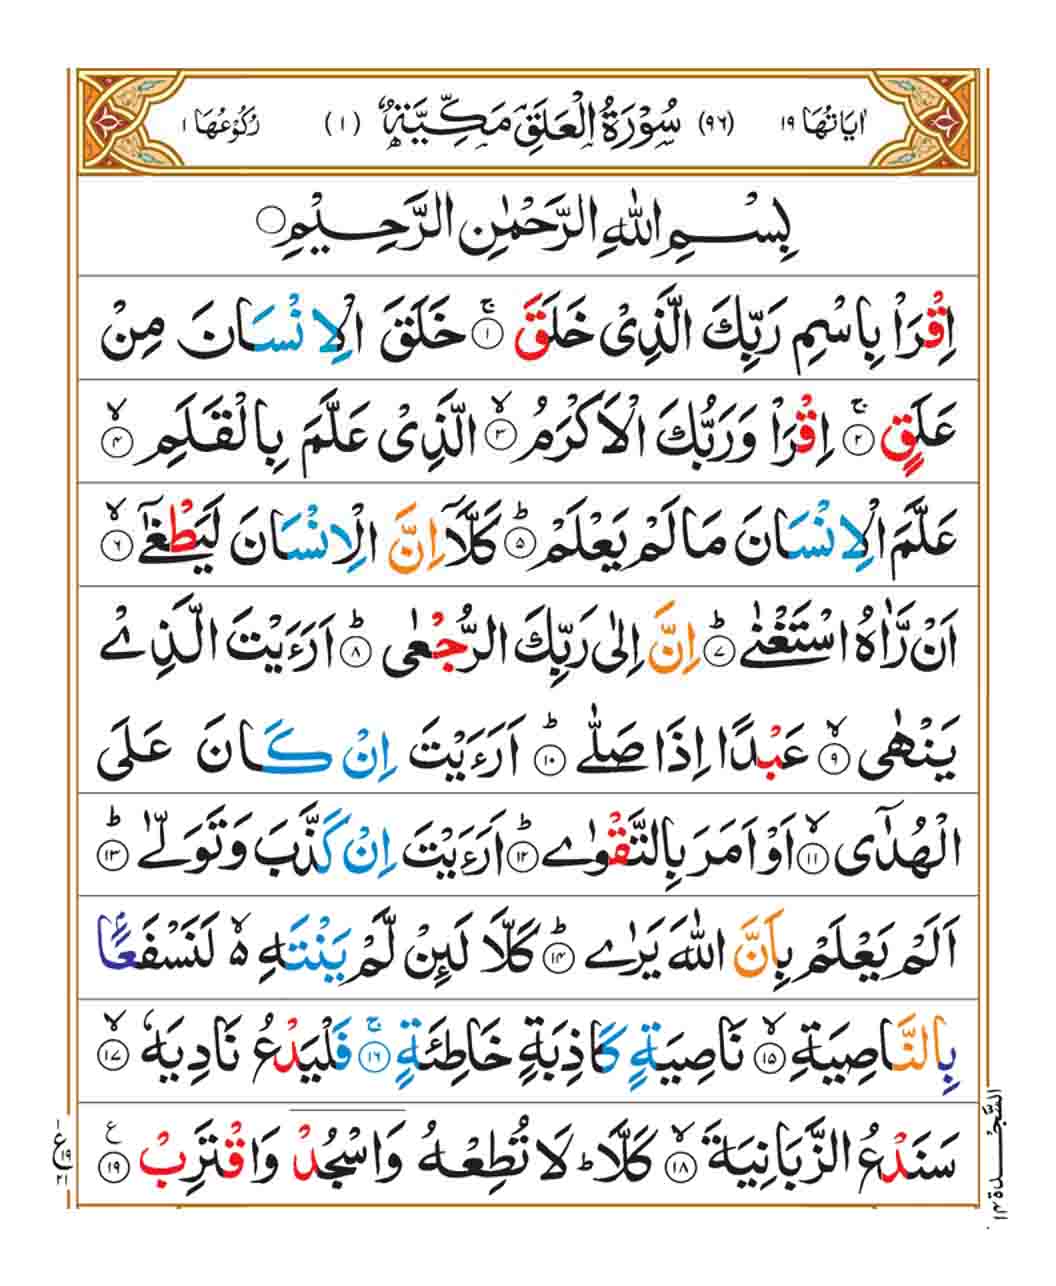 اٰیَاتُهَا ١٩ (٩٦) سُوْرَةُ الْعَلَقِ مَكِّیَّةٌ (١) رُكُوْعُهَا ١
بِسْمِ اللّٰهِ الرَّحْمٰنِ الرَّحِیْمِ
اِقْرَاْ بِاسْمِ رَبِّكَ الَّذِیْ خَلَقَ ۚ ﴿١﴾ خَلَقَ الْاِنْسَانَ مِنْ
عَلَقٍ ۚ ﴿٢﴾ اِقْرَاْ وَرَبُّكَ الْاَكْرَمُ ۙ ﴿٣﴾ الَّذِیْ عَلَّمَ بِالْقَلَمِ ۙ ﴿۴﴾
عَلَّمَ الْاِنْسَانَ مَا لَمْ یَعْلَمْ ؕ ﴿۵﴾ كَلَّاۤ اِنَّ الْاِنْسَانَ لَیَطْغٰۤی ۙ ﴿۶﴾
اَنْ رَّاٰهُ اسْتَغْنٰی ؕ ﴿٧﴾ اِنَّ اِلٰی رَبِّكَ الرُّجْعٰی ؕ ﴿٨﴾ اَرَءَیْتَ الَّذِیْ
یَنْهٰی ۙ ﴿٩﴾ عَبْدًا اِذَا صَلّٰی ؕ ﴿١٠﴾ اَرَءَیْتَ اِنْ كَانَ عَلَی
الْهُدٰۤی ۙ ﴿١١﴾ اَوْ اَمَرَ بِالتَّقْوٰی ؕ ﴿١٢﴾ اَرَءَیْتَ اِنْ كَذَّبَ وَتَوَلّٰی ؕ ﴿١٣﴾
اَلَمْ یَعْلَمْ بِاَنَّ اللّٰهَ یَرٰی ؕ ﴿١۴﴾ كَلَّا لَئِنْ لَّمْ یَنْتَهِ ۙ۬ لَنَسْفَعًۢا
بِالنَّاصِیَةِ ۙ ﴿١۵﴾ نَاصِیَةٍ كَاذِبَةٍ خَاطِئَةٍ ۚ ﴿١۶﴾ فَلْیَدْعُ نَادِیَهٗ ۙ ﴿١٧﴾
سَنَدْعُ الزَّبَانِیَةَ ۙ ﴿١٨﴾ كَلَّا ؕ لَا تُطِعْهُ وَاسْجُدْ وَاقْتَرِبْ ﴿١٩﴾ ع
السَّجْدَة ١۴
١
ع ١٩
٢١